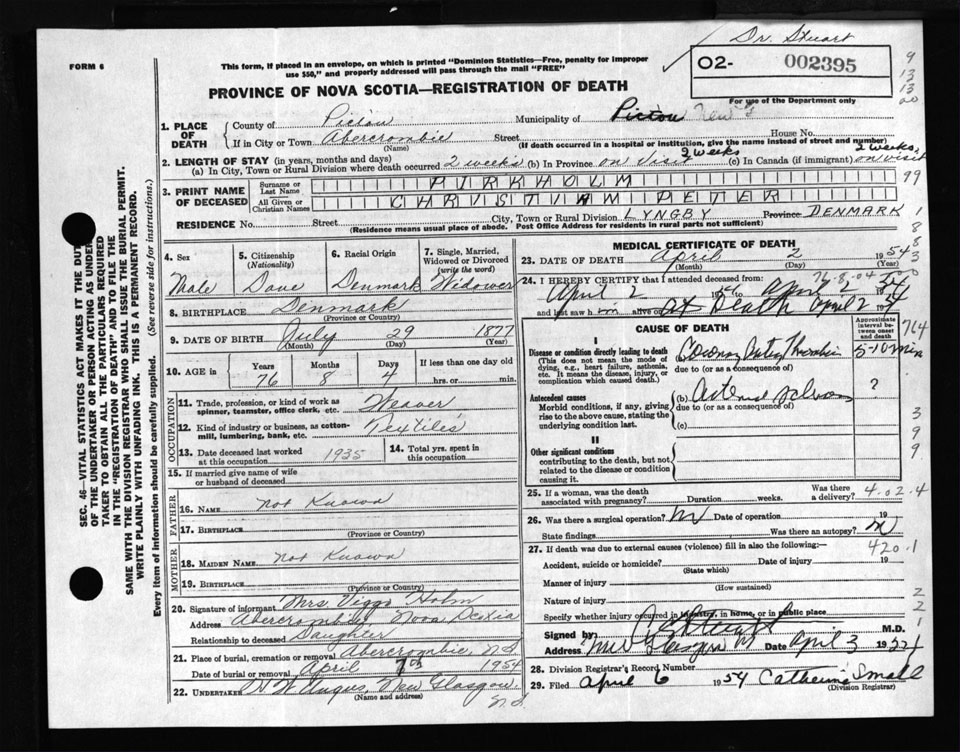 Dr. Stuart
FORM 6
This form, if placed in an envelope, on which is printed "Dominion Statistics—Free, penalty for improper
use $50," and properly addressed will pass through the mail "FREE"
02- 002395
For use of the Department only
PROVINCE OF NOVA SCOTIA—REGISTRATION OF DEATH
1. PLACE OF DEATH
County of Pictou Municipality of Pictou
If in City or Town Abercrombie Street House No.
(Name) (If death occurred in a hospital or institution, give the name instead of street and number)
2. LENGTH OF STAY (in years, months and days)
(a) In City, Town or Rural Division where death occurred 2 weeks (b) In Province on visit 2 weeks (c) In Canada (if immigrant) 2 weeks on visit
3. PRINT NAME OF DECEASED
Surname or Last Name PIRKHOLM
All Given or Christian Names CHRISTIAN PETER
RESIDENCE No. Street City, Town or Rural Division LYNGBY Province DENMARK
(Residence means usual place of abode. Post Office Address for residents in rural parts not sufficient)
4. Sex Male
5. Citizenship (Nationality) Dane
6. Racial Origin Denmark
7. Single, Married, Widowed or Divorced (write the word) Widower
8. BIRTHPLACE Denmark
(Province or Country)
9. DATE OF BIRTH July 29 1877
(Month) (Day) (Year)
10. AGE in Years 76 Months 8 Days 4 If less than one day old hrs. or min.
OCCUPATION
11. Trade, profession, or kind of work as spinner, teamster, office clerk, etc. Weaver
12. Kind of industry or business, as cotton-mill, lumbering, bank, etc. Textiles
13. Date deceased last worked at this occupation 1935
14. Total yrs. spent in this occupation
15. If married give name of wife or husband of deceased
FATHER
16. NAME Not Known
17. BIRTHPLACE
(Province or Country)
MOTHER
18. MAIDEN NAME Not Known
19. BIRTHPLACE
(Province or Country)
20. Signature of informant Mrs. Viggo Holm
Address Abercrombie, Nova Scotia
Relationship to deceased Daughter
21. Place of burial, cremation or removal Abercrombie, N.S.
Date of burial or removal April 7th 1954
22. UNDERTAKER H W Angus, New Glasgow N.S.
(Name and address)
MEDICAL CERTIFICATE OF DEATH
23. DATE OF DEATH April 2 1954
(Month) (Day) (Year)
24. I HEREBY CERTIFY that I attended deceased from:
April 2 1954 to April 2 1954
and last saw him alive on at Death April 2 1954
CAUSE OF DEATH
Approximate interval between onset and death
I
Disease or condition directly leading to death (a) Coronary Artery Thrombosis 5-10 min
(This does not mean the mode of dying, e.g., heart failure, asthenia, etc. It means the disease, injury, or complication which caused death.)
due to (or as a consequence of)
Antecedent causes (b) Arteriosclerosis ?
Morbid conditions, if any, giving rise to the above cause, stating the underlying condition last.
due to (or as a consequence of)
(c)
II
Other significant conditions
contributing to the death, but not related to the disease or condition causing it.
25. If a woman, was the death associated with pregnancy? Duration weeks. Was there a delivery?
4.02.4
26. Was there a surgical operation? Date of operation 19
State findings Was there an autopsy?
27. If death was due to external causes (violence) fill in also the following:—
420.1
Accident, suicide or homicide? Date of injury 19
(State which)
Manner of injury
(How sustained)
Nature of injury
Specify whether injury occurred in industry, in home, or in public place
Signed by M.D.
Address New Glasgow Date April 3 1954
28. Division Registrar's Record Number
29. Filed April 6 1954 Catherine Small
(Division Registrar)
SEC. 46—VITAL STATISTICS ACT MAKES IT THE DUTY
OF THE UNDERTAKER OR PERSON ACTING AS UNDER-
TAKER TO OBTAIN ALL THE PARTICULARS REQUIRED
IN THE "REGISTRATION OF DEATH" AND TO FILE THE
SAME WITH THE DIVISION REGISTRAR WHO SHALL ISSUE THE BURIAL PERMIT.
WRITE PLAINLY WITH UNFADING INK. THIS IS A PERMANENT RECORD.
Every item of information should be carefully supplied. (See reverse side for instructions.)